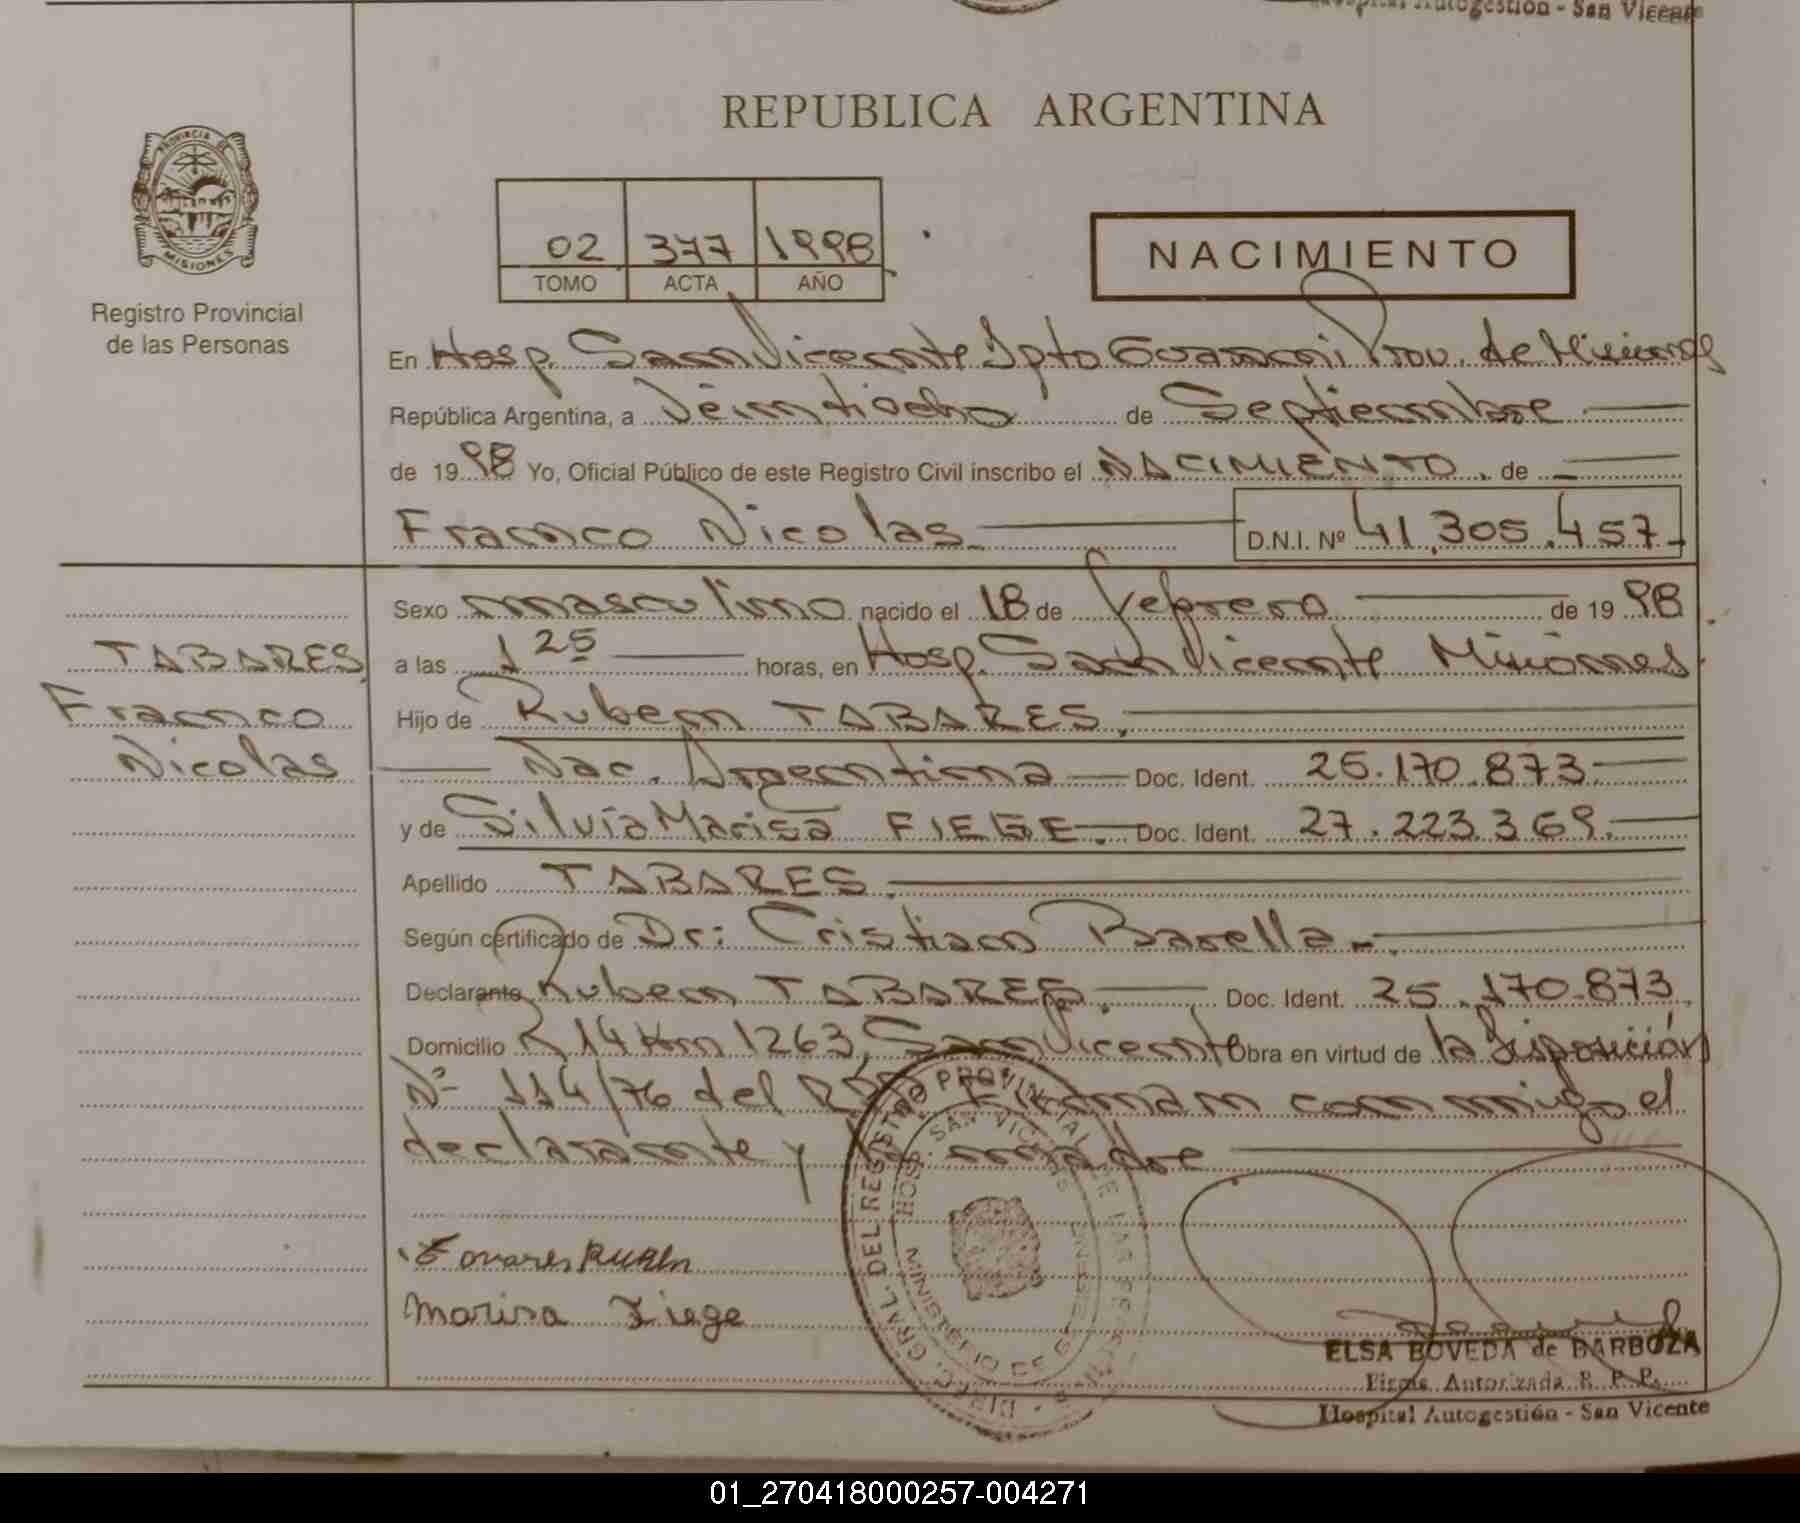 Hospital Autogestión - San Vicente
REPUBLICA ARGENTINA
PROVINCIA DE
MISIONES
Registro Provincial
de las Personas
02 377 1998
TOMO ACTA AÑO
NACIMIENTO
En Hosp. San Vicente Dpto Guarani, Prov. de Misiones
República Argentina, a Veintiocho de Septiembre
de 1998 Yo, Oficial Público de este Registro Civil inscribo el NACIMIENTO. de
Franco Nicolas D.N.I. Nº 41.305.457
Sexo masculino nacido el 18 de febrero de 1998
TABARES
Franco
Nicolas
a las 1 25 horas, en Hosp. San Vicente Misiones
Hijo de Ruben TABARES.
Nac. Argentina Doc. Ident. 25.170.873
y de Silvia Marisa FIEGE. Doc. Ident. 27.223.369.
Apellido TABARES.
Según certificado de Dr: Cristian Barella.
Declarante Ruben TABARES. Doc. Ident. 25.170.873
Domicilio R 14 Km 1263, San Vicente Obra en virtud de la Disposición
Nº 114/76 del Firman conmigo el
declarante y la madre
Tavares Ruben
Marisa Fiege
DIREC. GRAL. DEL REGISTRO PROVINCIAL DE LAS PERSONAS
HOSP. SAN VICENTE
ELSA BOVEDA de BARBOZA
Firma Autorizada R. P. P.
Hospital Autogestión - San Vicente
01_270418000257-004271